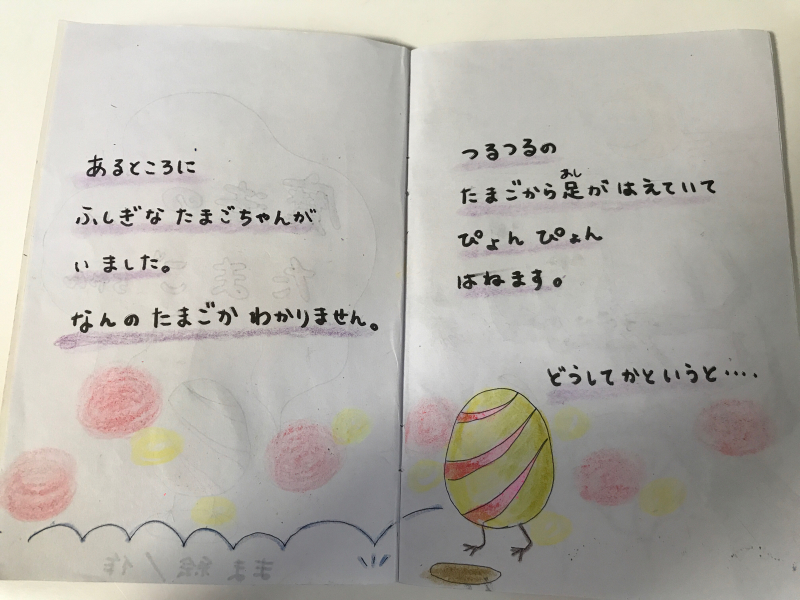 あるところに
ふしぎな たまごちゃんが
いました。
なんの たまごか わかりません。
つるつるの
たまごから足がはえていて
あし
ぴょん ぴょん
はねます。
どうしてかというと‥‥
まま 絵/作